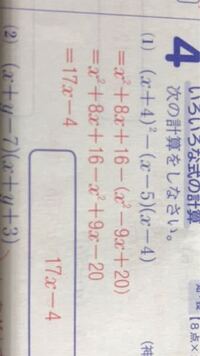 4 いろいろな式の計算
次の計算をしなさい。
【8点×
(1) (x+4)²−(x−5)(x−4)
=x²+8x+16−(x²−9x+20)
=x²+8x+16−x²+9x−20
=17x−4
17x−4
(2) (x+y−7)(x+y+3)